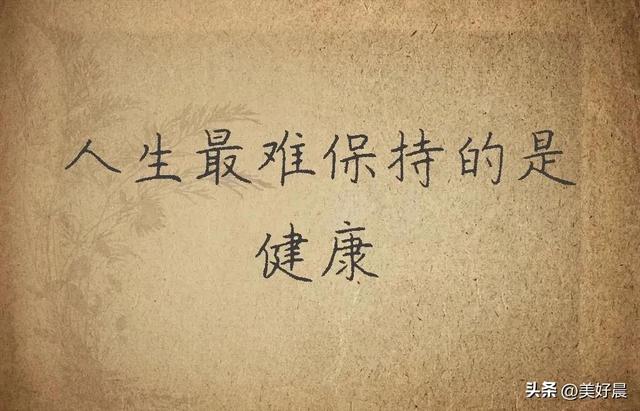 人生最难保持的是
健康
头条 @美好晨